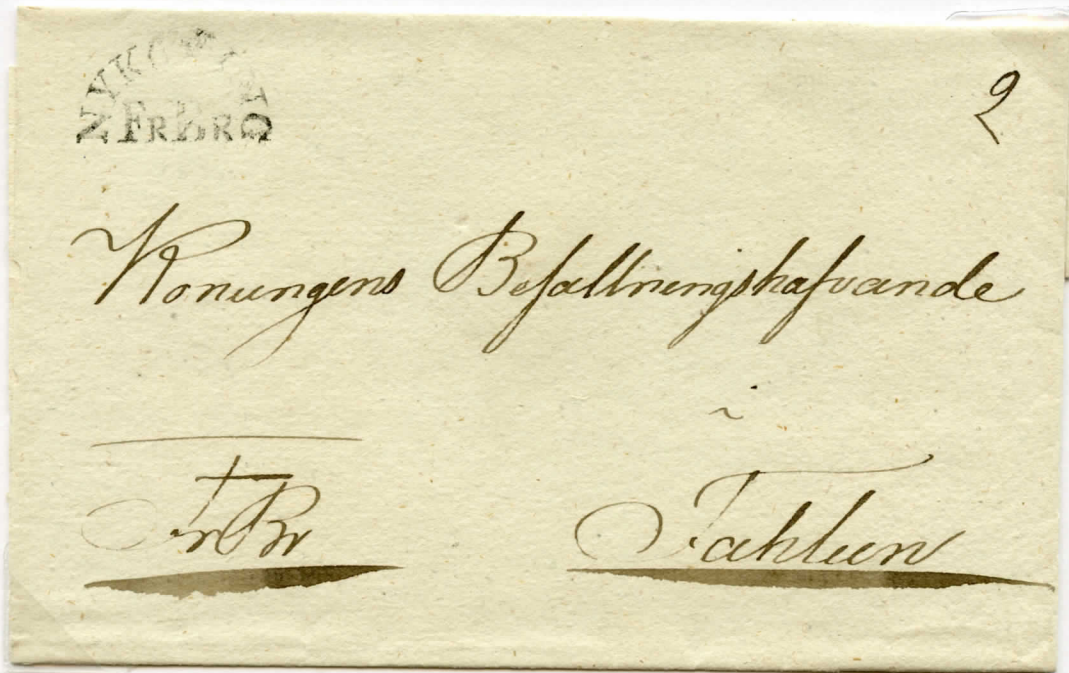 FRBR
2
Konungens Befallningshafvande
i
FrBr
Fahlun